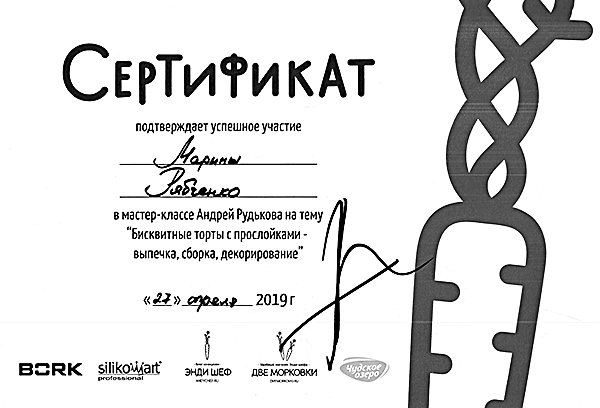 СЕРТИФИКАТ
подтверждает успешное участие
Марины
Рябченко
в мастер-классе Андрей Рудькова на тему
"Бисквитные торты с прослойками -
выпечка, сборка, декорирование"
«27» апреля 2019 г
BORK
silikomart
professional
ЭНДИ ШЕФ
ANDYCHEF.RU
ДВЕ МОРКОВКИ
Чудское
озеро